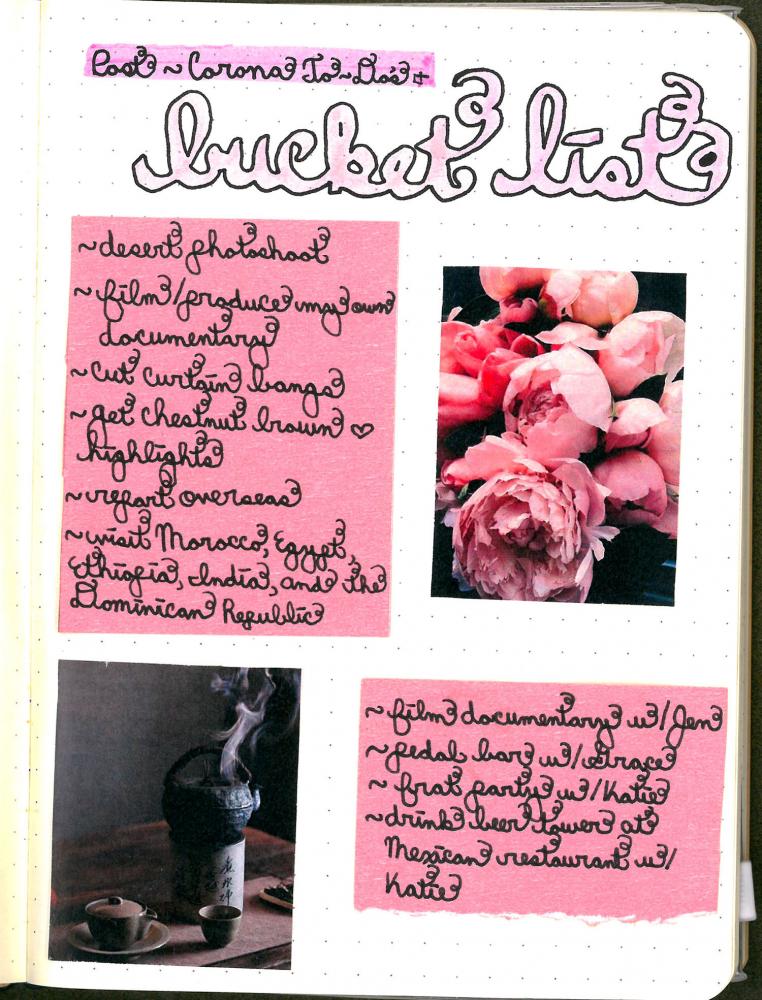 Post ~ Corona To-Do's +
bucket list
~desert photoshoot
~film/produce my own
documentary
~cut curtain bangs
~get chestnut brown ♡
highlights
~report overseas
~visit Morocco, Egypt,
Ethiopia, India, and the
Dominican Republic
~film documentary w/Jen
~pedal bar w/Grace
~frat party w/Katie
~drink beer tower at
Mexican restaurant w/
Katie